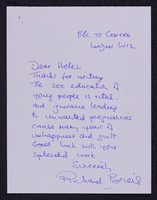 BBC TV Centre
London W12
Dear Helen
Thanks for writing.
The sex education of
young people is vital
and ignorance leading
to unwanted pregnancies
cause many years of
unhappiness and guilt
Good luck with your
splendid work
Sincerely,
Richard